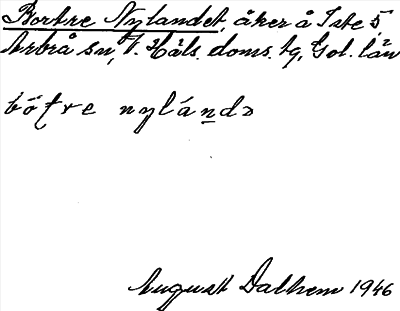 Bortre Nylandet, åker å Iste 5,
Arbrå sn, V. Häls. doms. tg, Gol. län
bötre nyländə
August Dalhem 1946